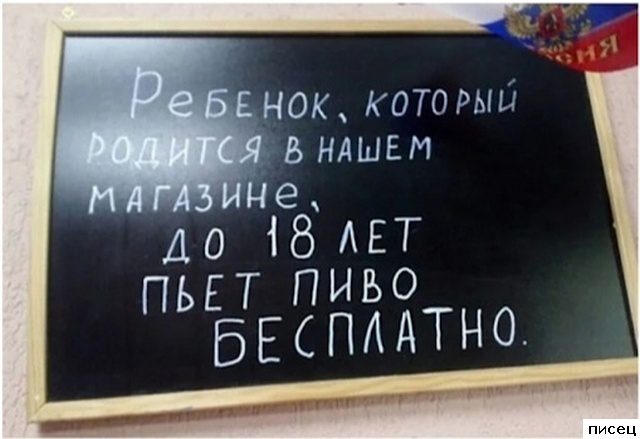 РеБЕНОК, КОТОРЫЙ
РОДИТСЯ В НАШЕМ
МАГАЗИНе,
ДО 18 ЛЕТ
ПЬЕТ ПИВО
БЕСПЛАТНО.
РОССИЯ
писец